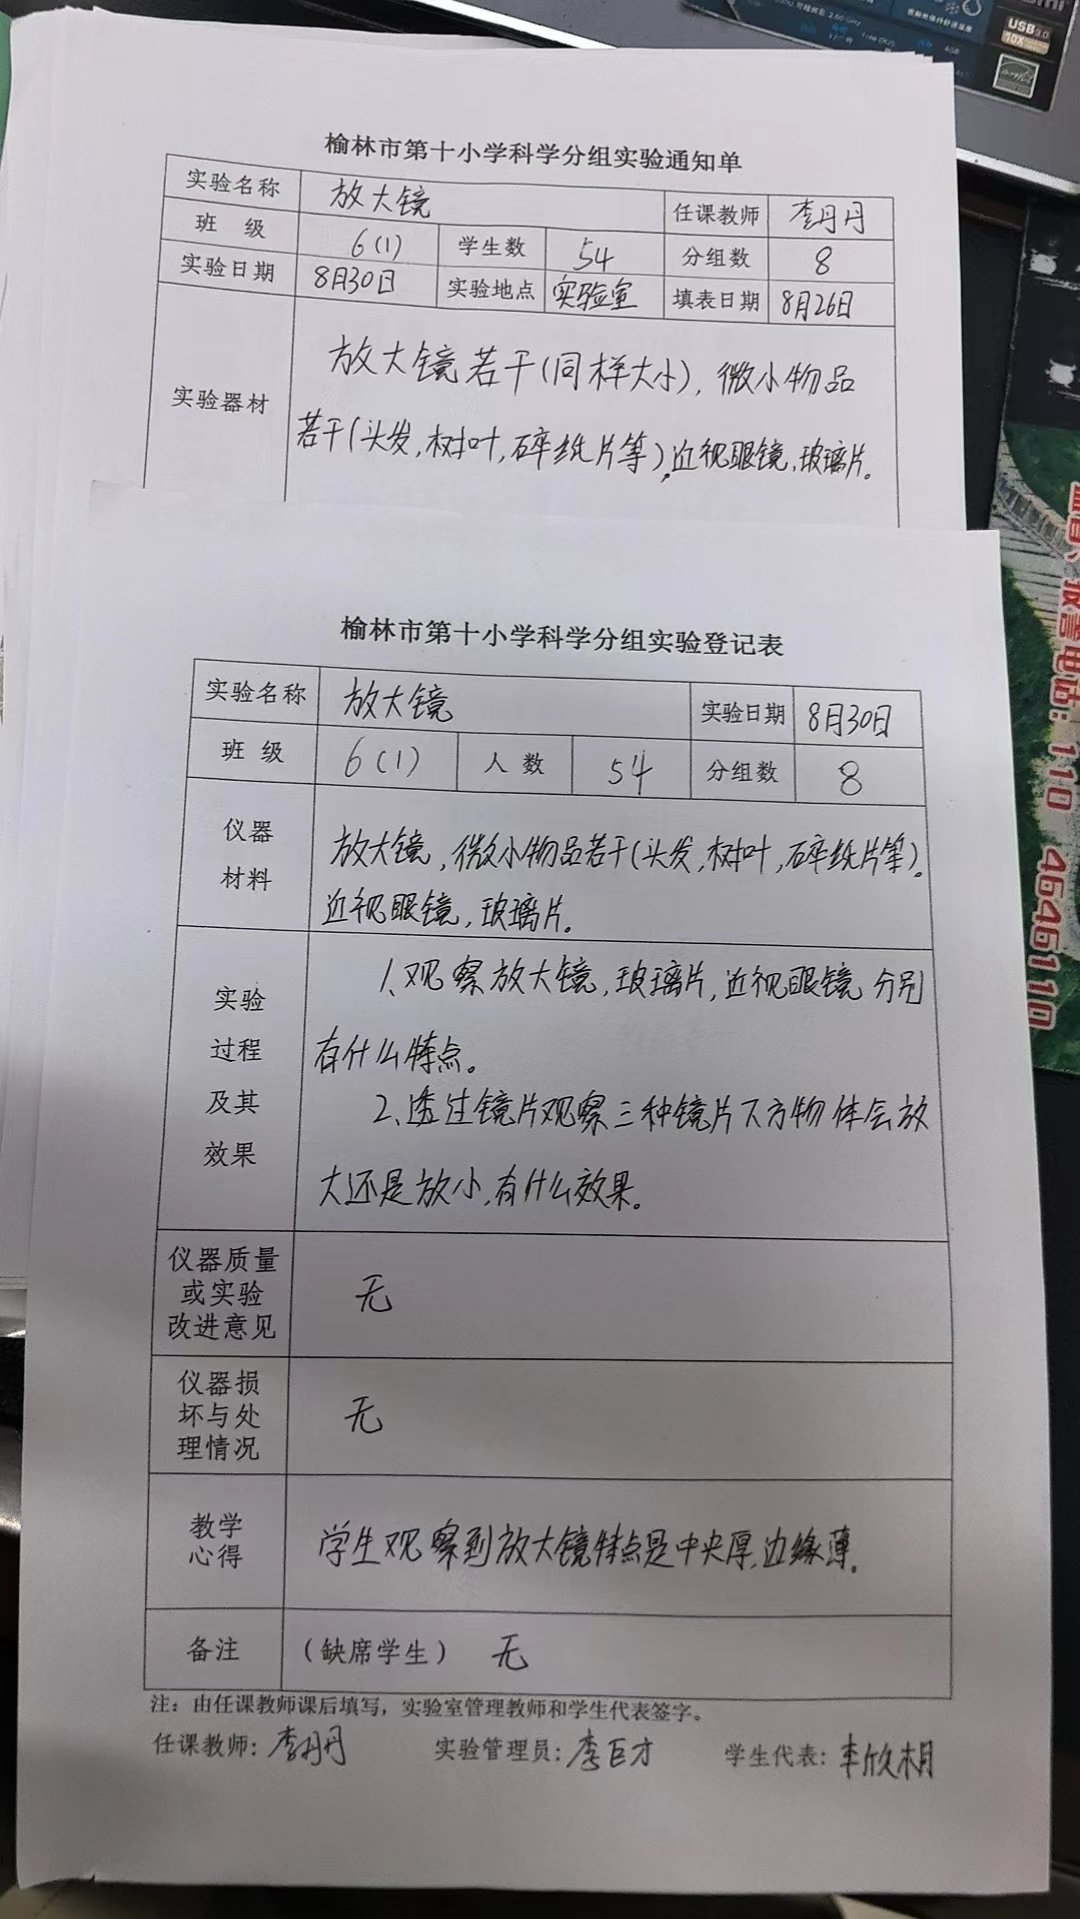 USB3.0
10X
榆林市第十小学科学分组实验通知单
实验名称 放大镜 任课教师 李丹丹
班 级 6(1) 学生数 54 分组数 8
实验日期 8月30日 实验地点 实验室 填表日期 8月26日
实验器材
放大镜若干(同样大小),微小物品
若干(头发,树叶,碎纸片等),近视眼镜,玻璃片。
报警电话:110 4646110
榆林市第十小学科学分组实验登记表
实验名称 放大镜 实验日期 8月30日
班 级 6(1) 人 数 54 分组数 8
仪器
材料
放大镜,微小物品若干(头发,树叶,碎纸片等)。
近视眼镜,玻璃片。
实验
过程
及其
效果
1、观察放大镜,玻璃片,近视眼镜分别
有什么特点。
2、透过镜片观察三种镜片下方物体会放
大还是放小,有什么效果。
仪器质量
或实验
改进意见
无
仪器损
坏与处
理情况
无
教学
心得
学生观察到放大镜特点是中央厚,边缘薄。
备注 (缺席学生) 无
注:由任课教师课后填写,实验室管理教师和学生代表签字。
任课教师:李丹丹 实验管理员:李巨才 学生代表:李欣桐